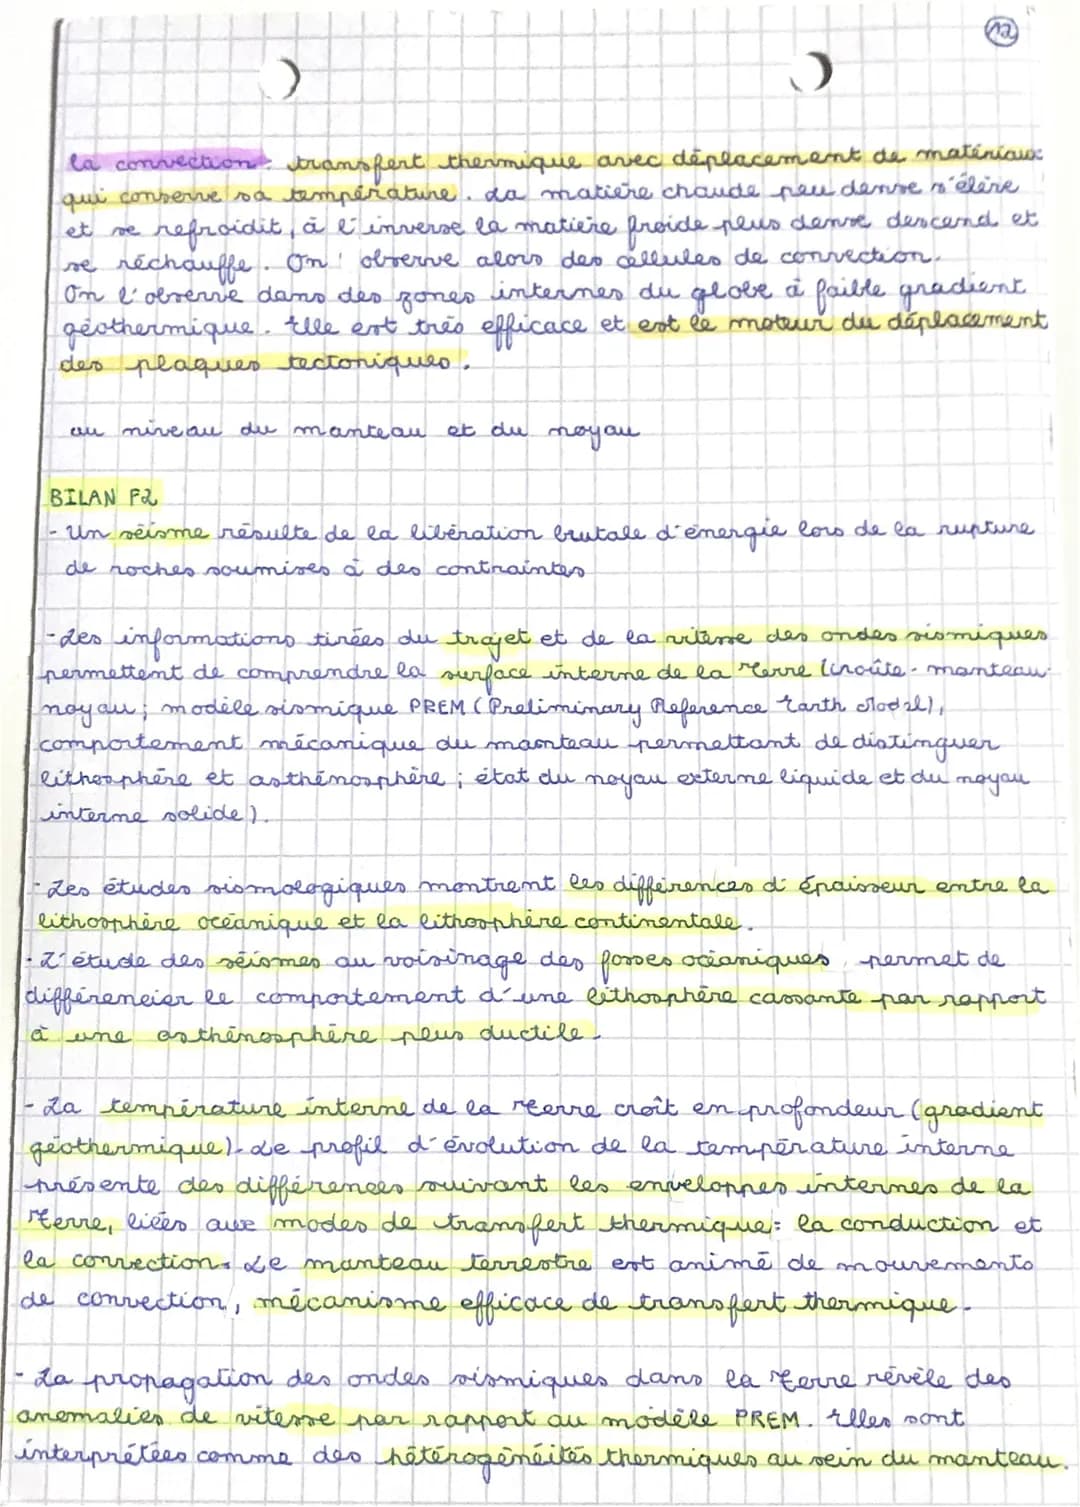 12
la convection : transfert thermique avec déplacement de matériaux
qui conserve sa température. La matière chaude peu dense s'élève
et se refroidit, à l'inverse la matière froide plus dense descend et
se réchauffe. On observe alors des cellules de convection.
On l'observe dans des zones internes du globe à faible gradient
géothermique. Elle est très efficace et est le moteur du déplacement
des plaques tectoniques.
au niveau du manteau et du noyau
BILAN F2
- Un séisme résulte de la libération brutale d'énergie lors de la rupture
de roches soumises à des contraintes
- Les informations tirées du trajet et de la vitesse des ondes sismiques
permettent de comprendre la surface interne de la Terre (croûte - manteau -
noyau ; modèle sismique PREM (Preliminary Reference Earth Model),
comportement mécanique du manteau permettant de distinguer
lithosphère et asthénosphère ; état du noyau externe liquide et du noyau
interne solide).
- Les études sismologiques montrent les différences d'épaisseur entre la
lithosphère océanique et la lithosphère continentale.
- L'étude des séismes au voisinage des fosses océaniques permet de
différencier le comportement d'une lithosphère cassante par rapport
à une asthénosphère plus ductile.
- La température interne de la Terre croît en profondeur (gradient
géothermique). Le profil d'évolution de la température interne
présente des différences suivant les enveloppes internes de la
Terre, liées aux modes de transfert thermique : la conduction et
la convection. Le manteau terrestre est animé de mouvements
de convection, mécanisme efficace de transfert thermique.
- La propagation des ondes sismiques dans la Terre révèle des
anomalies de vitesse par rapport au modèle PREM. Elles sont
interprétées comme des hétérogénéités thermiques au sein du manteau.